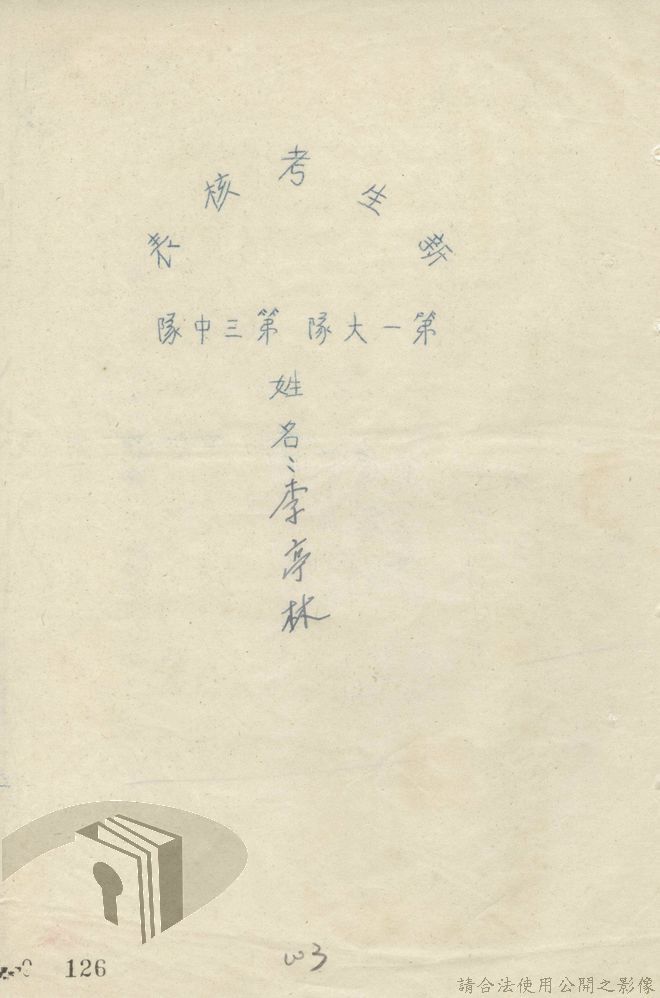 新生考核表
第一大隊 第三中隊
姓名:李亭林
126
請合法使用公開之影像